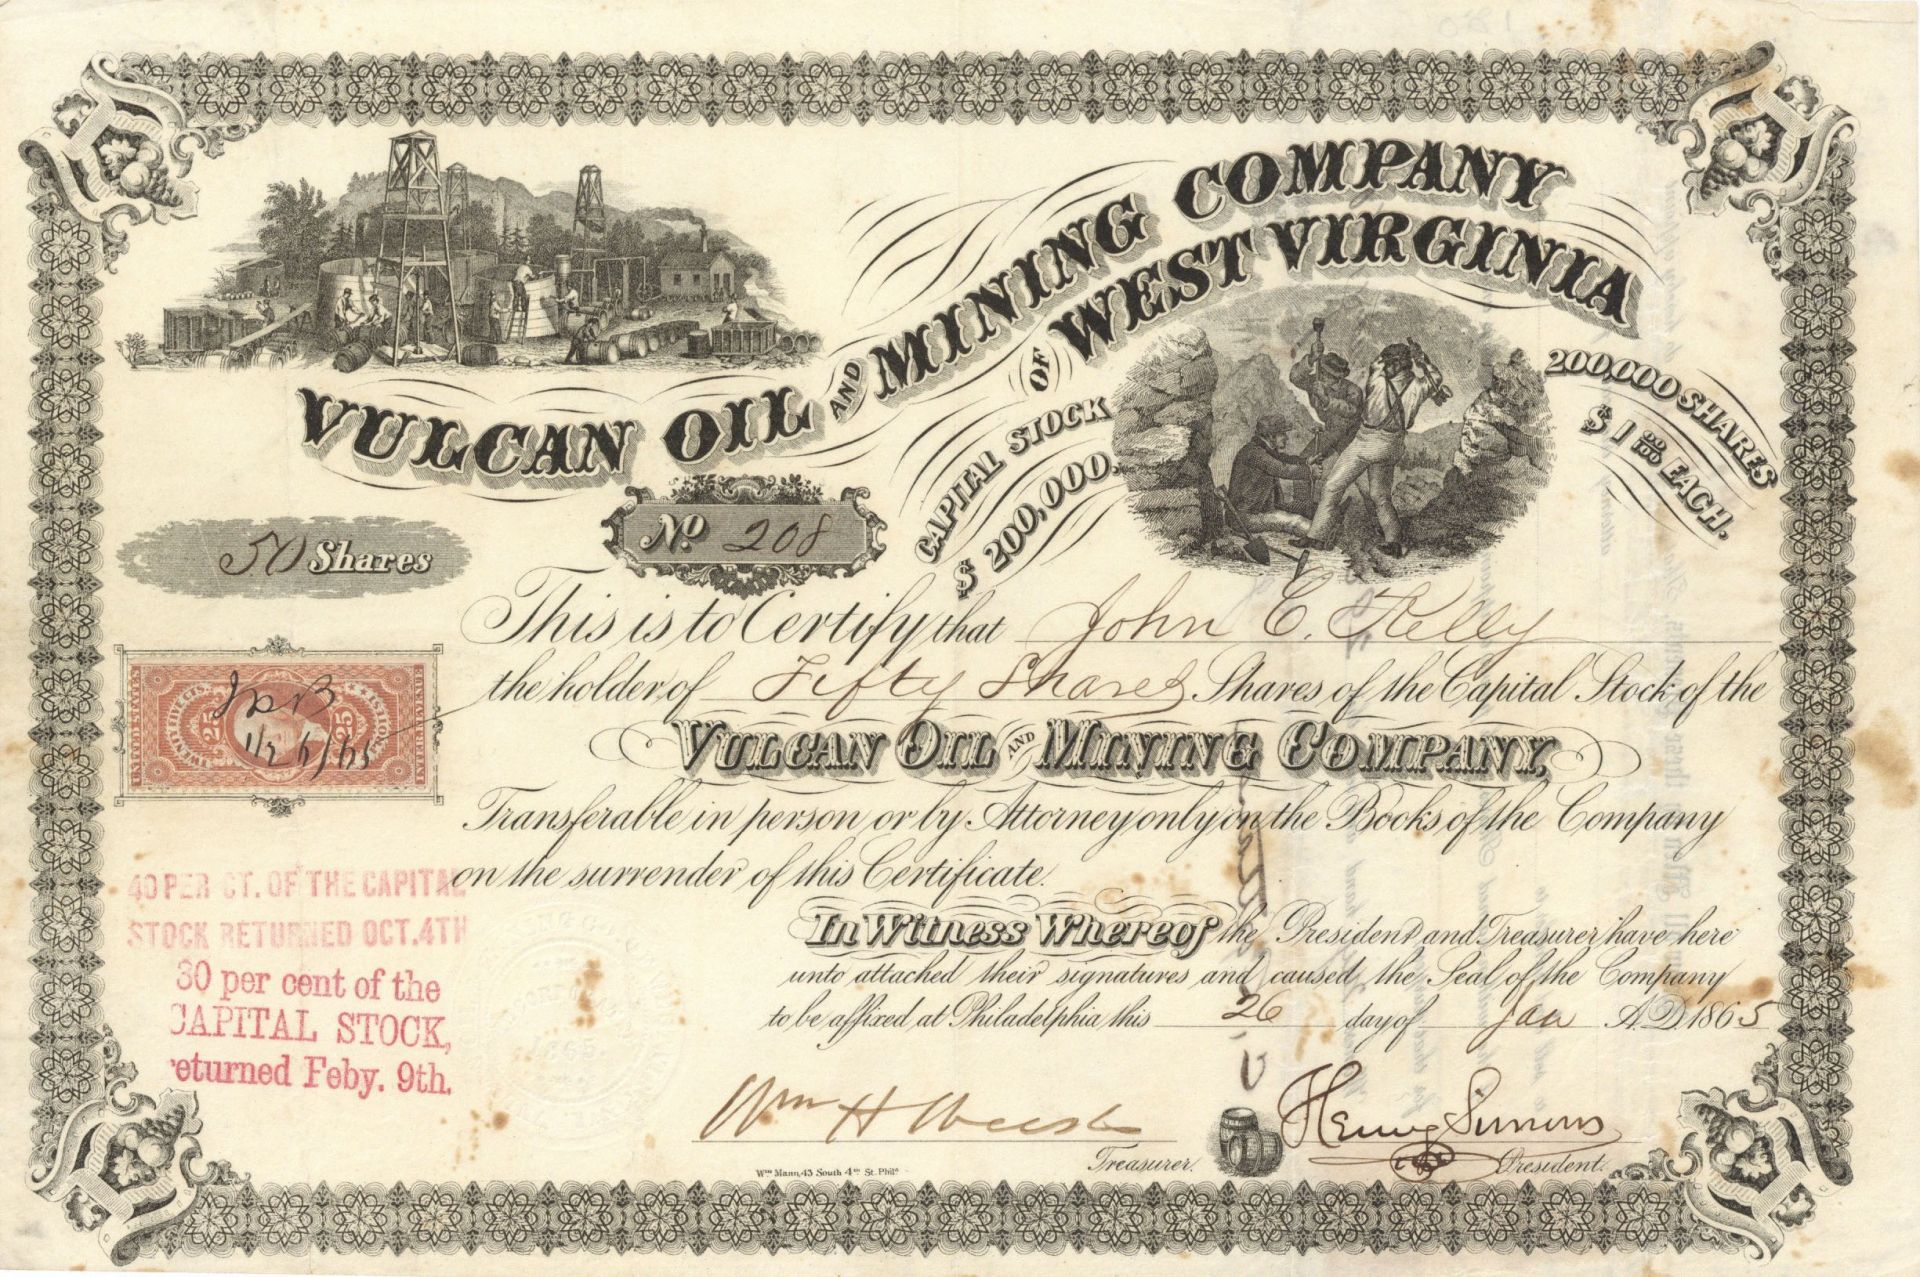 VULCAN OIL AND MINING COMPANY
OF WEST VIRGINIA
CAPITAL STOCK
$200,000.
200,000 SHARES
$1 00/100 EACH.
50 Shares
No. 208
This is to Certify that John C. Kelly
the holder of Fifty Shares Shares of the Capital Stock of the
VULCAN OIL AND MINING COMPANY,
Transferable in person or by Attorney only on the Books of the Company
on the surrender of this Certificate.
In Witness Whereof the President and Treasurer have here
unto attached their signatures and caused the Seal of the Company
to be affixed at Philadelphia this 26 day of Jan A.D. 1865
UNITED STATES
TWENTY FIVE CTS.
25
25
INTER. REVENUE
40 PER CT. OF THE CAPITAL
STOCK RETURNED OCT. 4TH
30 per cent of the
CAPITAL STOCK,
returned Feby. 9th.
1865
Wm H
Treasurer.
Henry Simons
President.
Wm Mann, 43 South 4th St. Phila